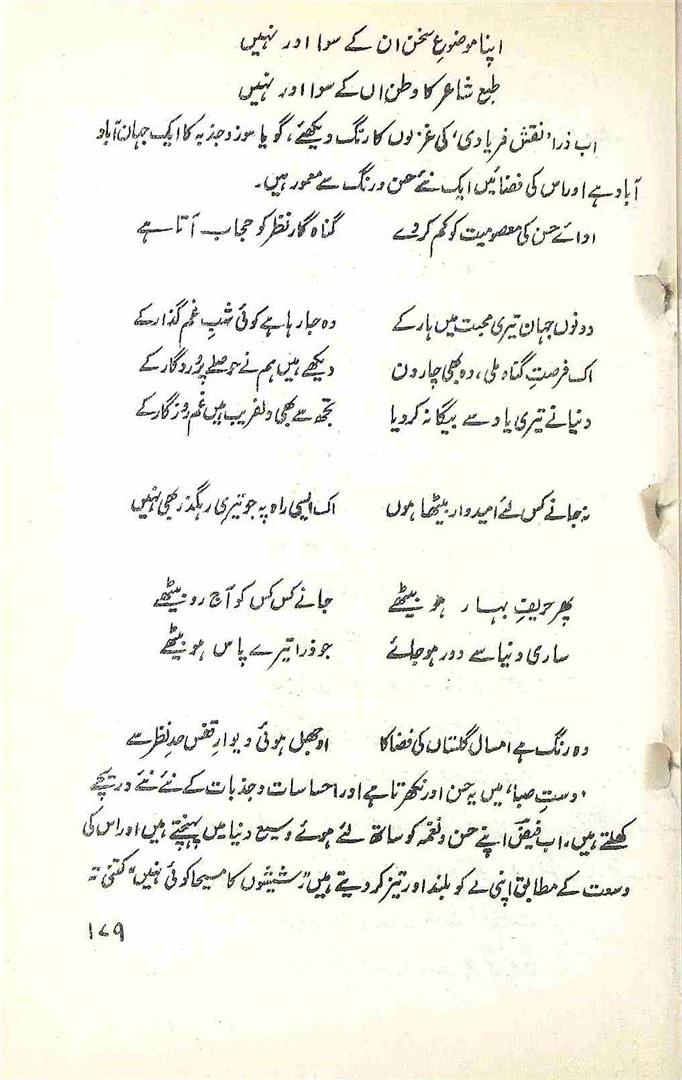 اپنا موضوعِ سخن ان کے سوا اور نہیں
طبع شاعر کا وطن اں کے سوا اور نہیں
اب ذرا ’نقش فریادی‘ کی غزلوں کا رنگ دیکھئے، گویا سوز و جذبہ کا ایک جہان آباد
آباد ہے اور اس کی فضائیں ایک نئے حسن و رنگ سے معمور ہیں۔
ادائے حسن کی معصومیت کو کم کر دے گناہ گار نظر کو حجاب آتا ہے
دونوں جہان تیری محبت میں ہار کے وہ جا رہا ہے کوئی شبِ غم گذار کے
اک فرصتِ گناہ ملی، وہ بھی چار دن دیکھے ہیں ہم نے حوصلے پروردگار کے
دنیا نے تیری یاد سے بیگانہ کر دیا تجھ سے بھی دلفریب ہیں غم روزگار کے
نہ جانے کس لئے امیدوار بیٹھا ہوں اک ایسی راہ پہ جو تیری رہگذر بھی نہیں
پھر حریفِ بہار ہو بیٹھے جانے کس کس کو آج رو بیٹھے
ساری دنیا سے دور ہو جائے جو ذرا تیرے پاس ہو بیٹھے
وہ رنگ ہے امسال گلستاں کی فضا کا اوجھل ہوئی دیوارِ قفس حدِ نظر سے
’دستِ صبا‘ میں یہ حسن اور نکھرتا ہے اور احساسات و جذبات کے نئے نئے دریچے
کھلتے ہیں، اب فیضؔ اپنے حسن و نغمہ کو ساتھ لئے ہوئے وسیع دنیا میں پہنچتے ہیں اور اس کی
وسعت کے مطابق اپنی لے کو بلند اور تیز کر دیتے ہیں ”شیشوں کا مسیحا کوئی نہیں“ کتنی تہ
۱۷۹